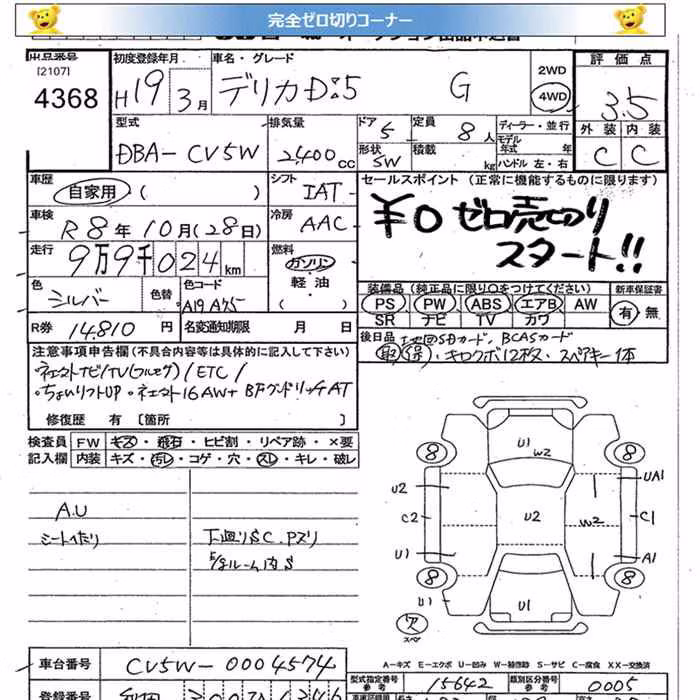 完全ゼロ切りコーナー
出品番号 初度登録年月 車名・グレード 評価点
[2107]
4368 H19年3月 デリカD:5 G 2WD 4WD 3.5
型式 排気量 ドア 5 定員 8人 ディーラー・並行 外装 内装
DBA-CV5W 2400cc 形状 5W 積載 kg モデル年式 年 ハンドル 左・右 C C
車歴 自家用 ( ) シフト IAT セールスポイント (正常に機能するものに限ります)
車検 R8年10月(28日) 冷房 AAC ¥0 ゼロ売切り
走行 9万9千024km 燃料 ガソリン・軽油・( ) スタート!!
色 シルバー 色替 色コード A19 A75 装備品 (純正品に限り○をつけてください) 新車保証書
PS PW ABS エアB AW 有・無
SR ナビ TV カワ
R券 14,810円 名変通知期限 月 日 後日品 地図SDカード、BCASカード
取 保・キロクボ12枚、スペアキー1本
注意事項申告欄 (不具合内容等は具体的に記入して下さい)
・ネエストナビ/TV(フルセグ)/ETC/
・ちょいリフトUP・ネエスト16AW+BFグッドリッチAT
修復歴 有 [箇所 ]
検査員 FW キズ・飛石・ヒビ割・リペア跡・×要
記入欄 内装 キズ・汚レ・コゲ・穴・スレ・キレ・破レ
A.U
シートへたり 下廻りSC.Pズリ
E/gルーム内S
U1
W2
8 8
U2 UA1
C2 U2 W2 C1
U1 A1
8 8
U1 U1
スペア
A-キズ E-エクボ U-凹み W-補修跡 S-サビ C-腐食 XX-交換済
車台番号 CV5W-0004574 型式指定番号 参考 15642 類別区分番号 参考 0005